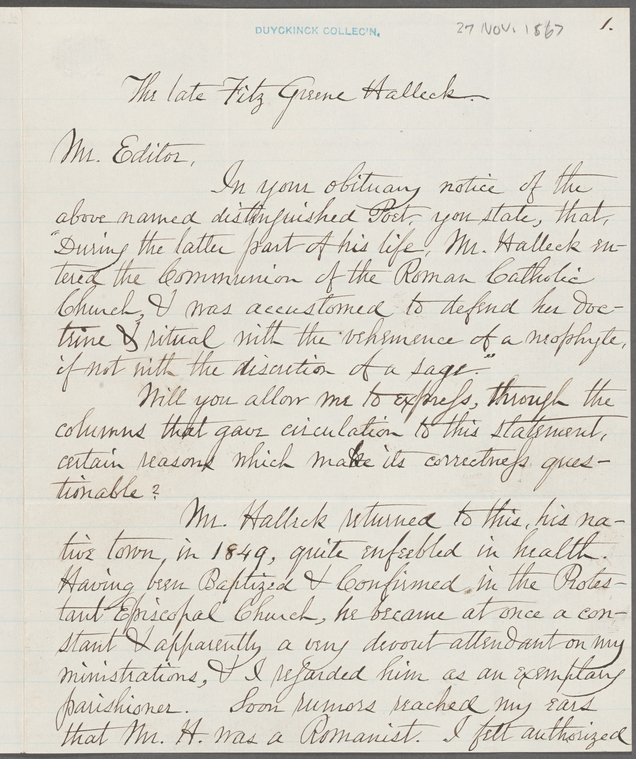 DUYCKINCK COLLEC'N.
27 NOV. 1867
1.
The late Fitz Greene Halleck.
Mr. Editor,
In your obituary notice of the
above named distinguished Poet, you state, that,
"During the latter part of his life, Mr. Halleck en-
tered the Communion of the Roman Catholic
Church, & was accustomed to defend her Doc-
trine & ritual with the vehemence of a neophyte,
if not with the discretion of a sage."
Will you allow me to express, through the
columns that gave circulation to this statement,
certain reasons which make its correctness ques-
tionable?
Mr. Halleck returned to this, his na-
tive town, in 1849, quite enfeebled in health.
Having been Baptized & Confirmed in the Protes-
tant Episcopal Church, he became at once a con-
stant & apparently a very devout attendant on my
ministrations, & I regarded him as an exemplary
parishioner. Soon rumors reached my ears
that Mr. H. was a Romanist. I felt authorized